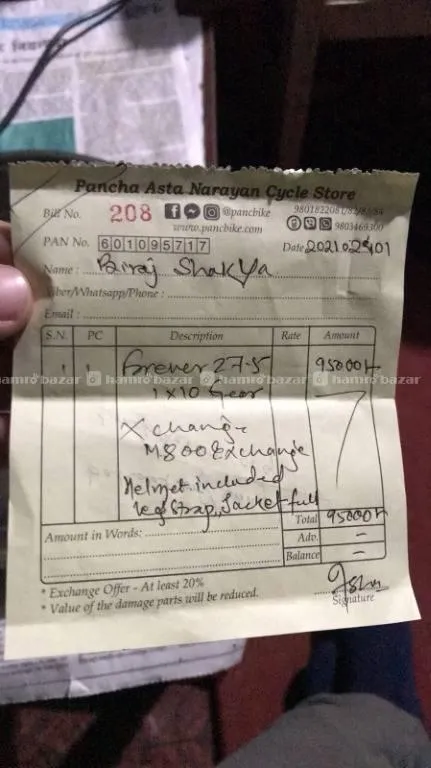 Pancha Asta Narayan Cycle Store
Bill No. 208 @pancbike 9801822081/82/83/84
www.pancbike.com 9803469300
PAN No. 601095717 Date 2021.02.01
Name : Biraj Shakya
Viber/Whatsapp/Phone :
Email :
S.N. PC Description Rate Amount
1 1 Forever 27.5 95000/-
hamrobazar hamrobazar hamrobazar hamrobazar
1x10 Gear
Xchange
M800 Exchange
Helmet included
leg strap, Jacket full
Total 95000/-
Amount in Words: Adv. –
Balance –
* Exchange Offer - At least 20%
* Value of the damage parts will be reduced.
Signature